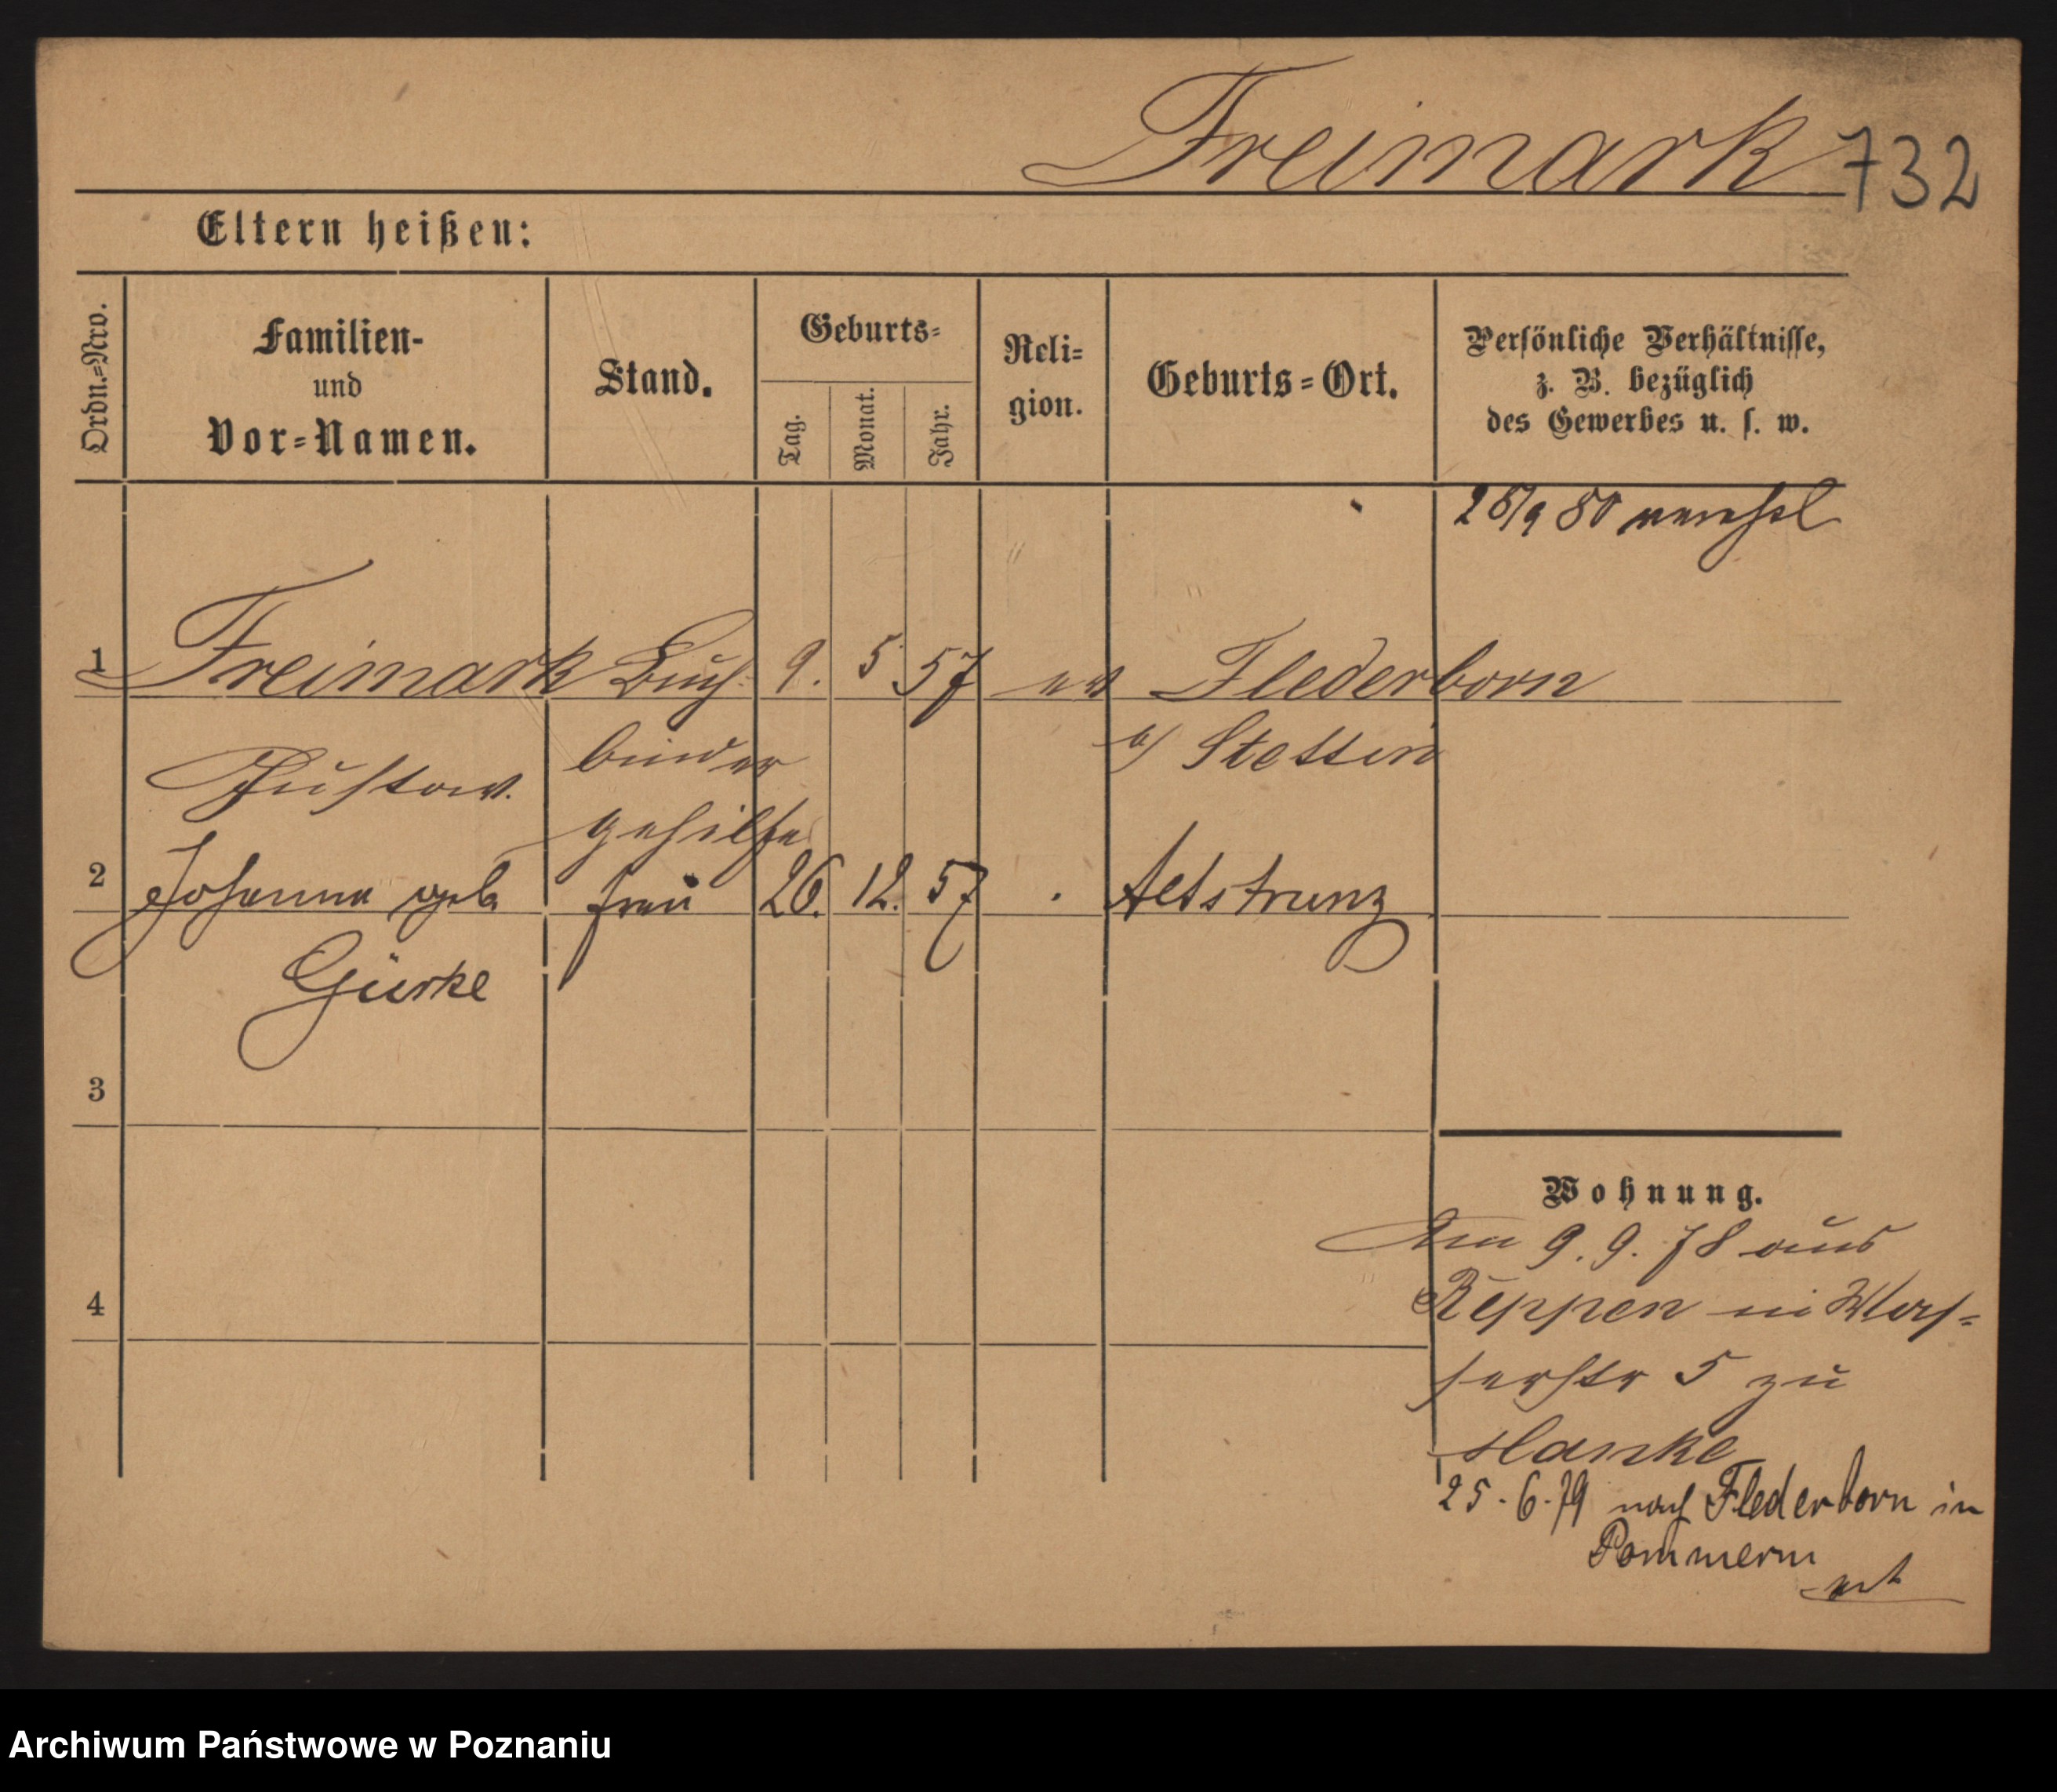 Freimark 732
Eltern heißen:
Ordn.=Nro.
Familien-
und
Vor=Namen.
Stand.
Geburts=
Tag.
Monat.
Jahr.
Reli=
gion.
Geburts=Ort.
Persönliche Verhältnisse,
z. B. bezüglich
des Gewerbes u. s. w.
28/9 80
1 Freimark Buch 9. 5 57 Flederborn
Gustav. binder b/ Stettin
gehilfe
2 Johanna geb Frau 26. 12. 57 Altstrunz
Gürke
3
4
Wohnung.
Am 9. 9. 78 aus
Reppen in Was=
serstr 5 zu
Hanke
25. 6. 79 nach Flederborn in
Pommern
Archiwum Państwowe w Poznaniu